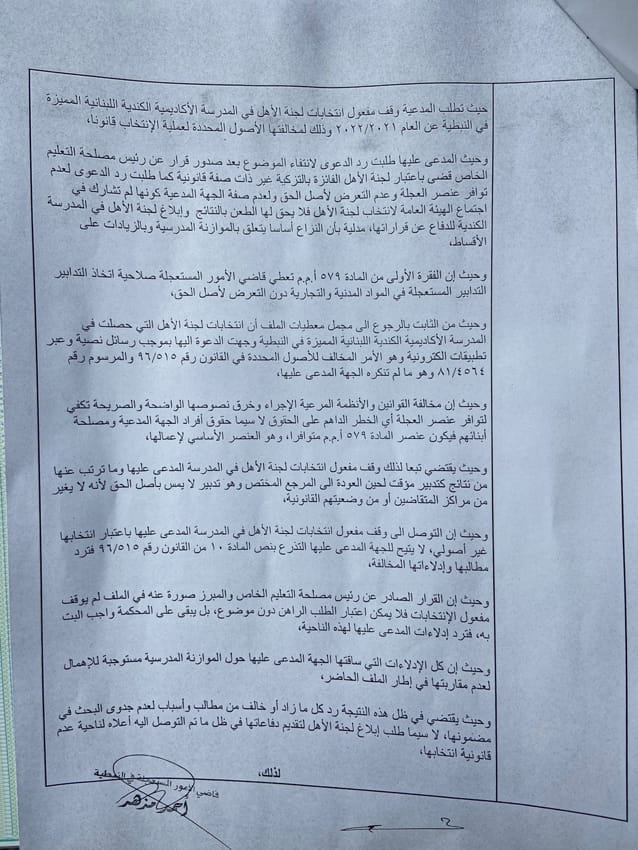 حيث تطلب المدعية وقف مفعول انتخابات لجنة الأهل في المدرسة الأكاديمية الكندية اللبنانية المميزة
في النبطية عن العام ٢٠٢٢/٢٠٢١ وذلك لمخالفتها الأصول المحددة لعملية الإنتخاب قانونا،
وحيث المدعى عليها طلبت رد الدعوى لانتفاء الموضوع بعد صدور قرار عن رئيس مصلحة التعليم
الخاص قضى باعتبار لجنة الأهل الفائزة بالتزكية غير ذات صفة قانونية كما طلبت رد الدعوى لعدم
توافر عنصر العجلة وعدم التعرض لأصل الحق ولعدم صفة الجهة المدعية كونها لم تشارك في
اجتماع الهيئة العامة لانتخاب لجنة الأهل فلا يحق لها الطعن بالنتائج وإبلاغ لجنة الأهل في المدرسة
الكندية للدفاع عن قراراتها، مدلية بأن النزاع أساسا يتعلق بالموازنة المدرسية وبالزيادات على
الأقساط،
وحيث إن الفقرة الأولى من المادة ٥٧٩ أ.م.م تعطي قاضي الأمور المستعجلة صلاحية اتخاذ التدابير
التدابير المستعجلة في المواد المدنية والتجارية دون التعرض لأصل الحق،
وحيث من الثابت بالرجوع الى مجمل معطيات الملف أن انتخابات لجنة الأهل التي حصلت في
المدرسة الأكاديمية الكندية اللبنانية المميزة في النبطية وجهت الدعوة اليها بموجب رسائل نصية وعبر
تطبيقات الكترونية وهو الأمر المخالف للأصول المحددة في القانون رقم ٩٦/٥١٥ والمرسوم رقم
٨١/٤٥٦٤ وهو ما لم تنكره الجهة المدعى عليها،
وحيث إن مخالفة القوانين والأنظمة المرعية الإجراء وخرق نصوصها الواضحة والصريحة تكفي
لتوافر عنصر العجلة أي الخطر الداهم على الحقوق لا سيما حقوق أفراد الجهة المدعية ومصلحة
أبنائهم فيكون عنصر المادة ٥٧٩ أ.م.م متوافرا، وهو العنصر الأساسي لإعمالها،
وحيث يقتضي تبعا لذلك وقف مفعول انتخابات لجنة الأهل في المدرسة المدعى عليها وما ترتب عنها
من نتائج كتدبير مؤقت لحين العودة الى المرجع المختص وهو تدبير لا يمس بأصل الحق لأنه لا يغير
من مراكز المتقاضين أو من وضعيتهم القانونية،
وحيث إن التوصل الى وقف مفعول انتخابات لجنة الأهل في المدرسة المدعى عليها باعتبار انتخابها
غير أصولي، لا يتيح للجهة المدعى عليها التذرع بنص المادة ١٠ من القانون رقم ٩٦/٥١٥ فترد
مطالبها وإدلاءاتها المخالفة،
وحيث إن القرار الصادر عن رئيس مصلحة التعليم الخاص والمبرز صورة عنه في الملف لم يوقف
مفعول الإنتخابات فلا يمكن اعتبار الطلب الراهن دون موضوع، بل يبقى على المحكمة واجب البت
به، فترد إدلاءات المدعى عليها لهذه الناحية،
وحيث إن كل الإدلاءات التي ساقتها الجهة المدعى عليها حول الموازنة المدرسية مستوجبة للإهمال
لعدم مقاربتها في إطار الملف الحاضر،
وحيث يقتضي في ظل هذه النتيجة رد كل ما زاد أو خالف من مطالب وأسباب لعدم جدوى البحث في
مضمونها، لا سيما طلب إبلاغ لجنة الأهل لتقديم دفاعاتها في ظل ما تم التوصل اليه أعلاه لناحية عدم
قانونية انتخابها،
لذلك،
قاضي الأمور المستعجلة في النبطية
أحمد مزهر